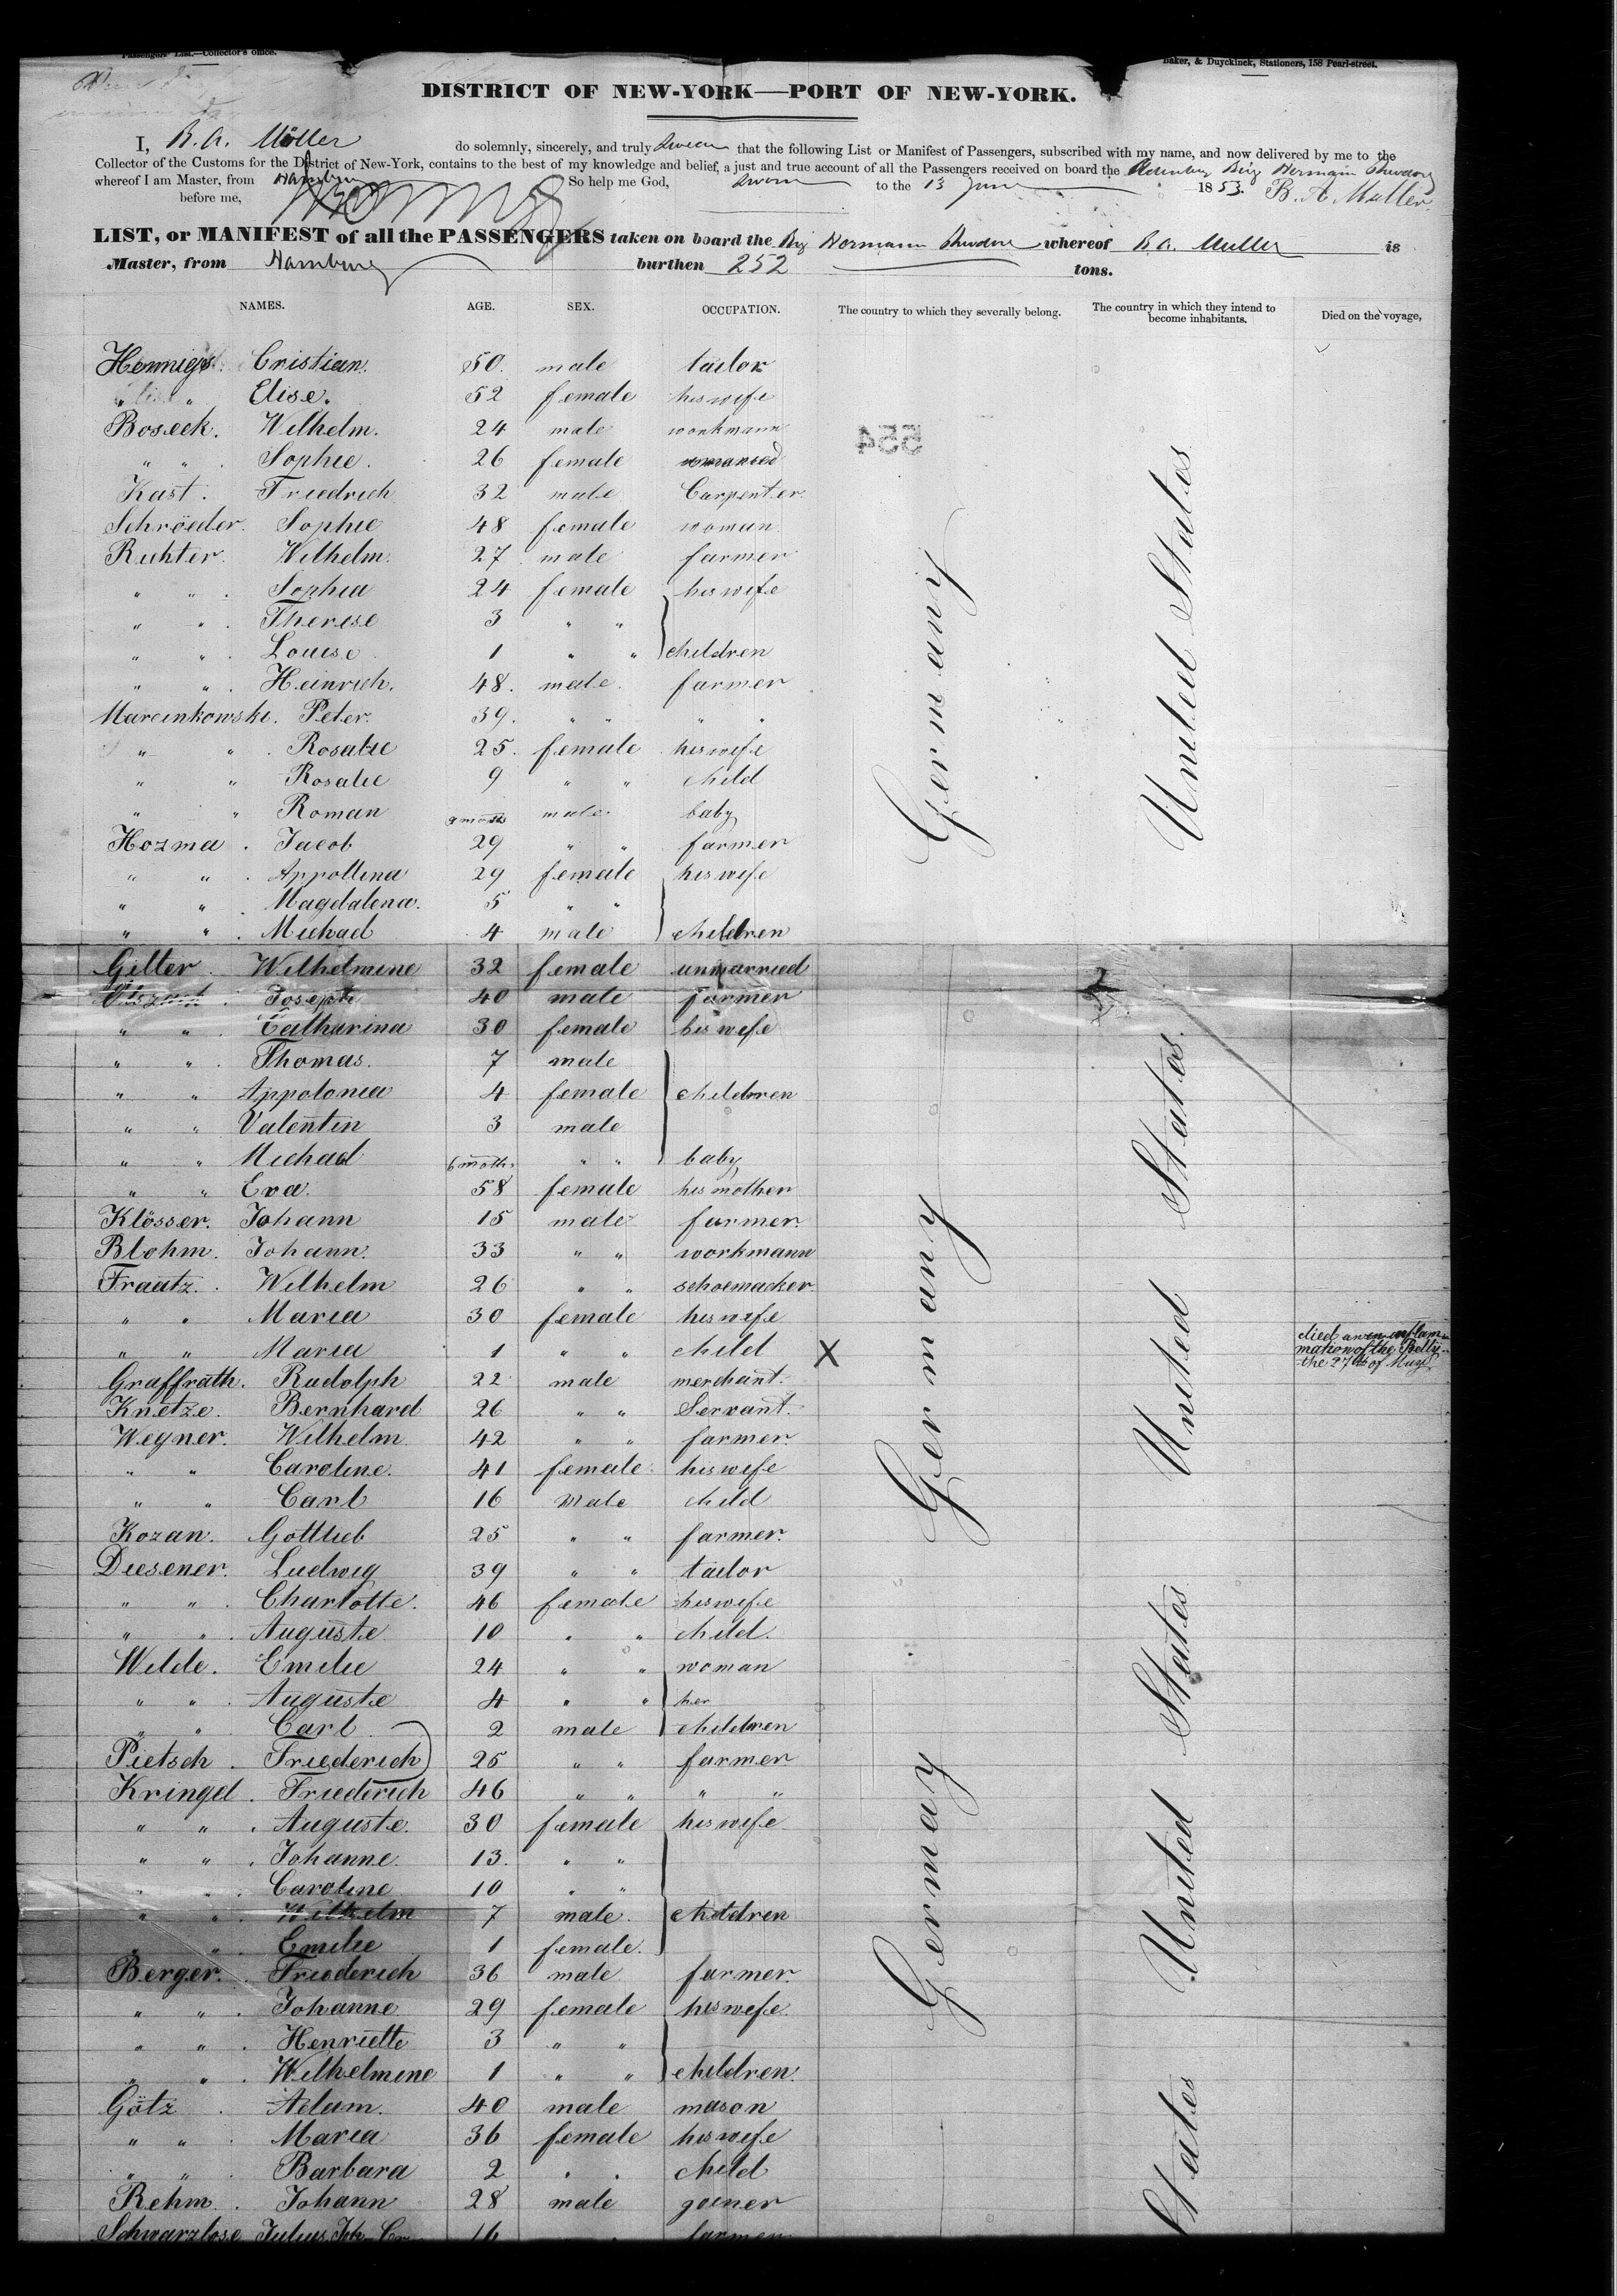 Passengers' List.—Collector's office.
Baker, & Duyckinck, Stationers, 158 Pearl-street.
DISTRICT OF NEW-YORK—PORT OF NEW-YORK.
I, B. A. Möller do solemnly, sincerely, and truly swear that the following List or Manifest of Passengers, subscribed with my name, and now delivered by me to the
Collector of the Customs for the District of New-York, contains to the best of my knowledge and belief, a just and true account of all the Passengers received on board the Brig Hermann Theodor
whereof I am Master, from Hamburg So help me God, Sworn to the 13 June 1853. B. A. Muller
before me,
LIST, or MANIFEST of all the PASSENGERS taken on board the Brig Hermann Theodore whereof B. A. Muller is
Master, from Hamburg burthen 252 tons.
NAMES. AGE. SEX. OCCUPATION. The country to which they severally belong. The country in which they intend to become inhabitants. Died on the voyage,
Hennigs Cristian. 50. male tailor
" Elise. 52 female his wife
554
Boseck. Wilhelm. 24 male workmann
" " Sophie. 26 female
Kast. Friedrich 32 male Carpenter
Schröeder. Sophie 48 female woman
Ruhter. Wilhelm. 27 male farmer
" " Sophia 24 female his wife
" " Therese 3 " "
" " Louise 1 " " children
" " Heinrich. 48. male farmer
Marcinkowski. Peter. 39. " " " "
" " Rosalie 25. female his wife
" " Rosalie 9 " " child
" " Roman 9 moths male baby
Hozma. Jacob 29 " " farmer
" " Appollina 29 female his wife
" " Magdalena. 5 " "
" " Michael 4 male children
Germany
United States
Gilter Wilhelmine 32 female unmarried
Joseph 40 male farmer
" " Catharina 30 female his wife
" " Thomas. 7 male
" " Appolonia 4 female children
" " Valentin 3 male
" " Michael 6 moths " " baby
" " Eva. 58 female his mother
Klösser. Johann 15 male farmer.
Blohm. Johann. 33 " " workmann
Fraatz. Wilhelm 26 " " schoemacker
" " Maria 30 female his wife
" " Maria 1 " " child X died an en inflammation of the Belly the 27th of May
Graffrath. Rudolph 22 male merchant.
Knetze. Bernhard 26 " " Servant.
Wegner. Wilhelm 42 " " farmer.
" " Caroline. 41 female his wife
" " Carl 16 male child
Kozan. Gottlieb 25 " " farmer.
Germany
United States
Diesener. Ludwig 39 " " tailor
" " Charlotte. 46 female his wife
" " Auguste 10 " " child.
Wilde. Emilie 24 " " woman
" " Auguste 4 " " her
" " Carl 2 male children
Pietsch. Friederich 25 " " farmer
Kringel. Friederich 46 " " " "
" " Auguste. 30 female his wife
" " Johanne. 13. " "
" " Caroline 10 " "
" " Wilhelm 7 male. children
" " Emilie 1 female.
Berger. Friederich 36 male farmer.
" " Johanne 29 female his wefe.
" " Henriette 3 " "
" " Wilhelmine 1 " " children.
Germay
United States
Götz Adam. 40 male mason
" " Maria 36 female his wife
" " Barbara 2 " " child
Rehm. Johann 28 male goener
Schwarzlose Julius, Joh 16 farmer
States